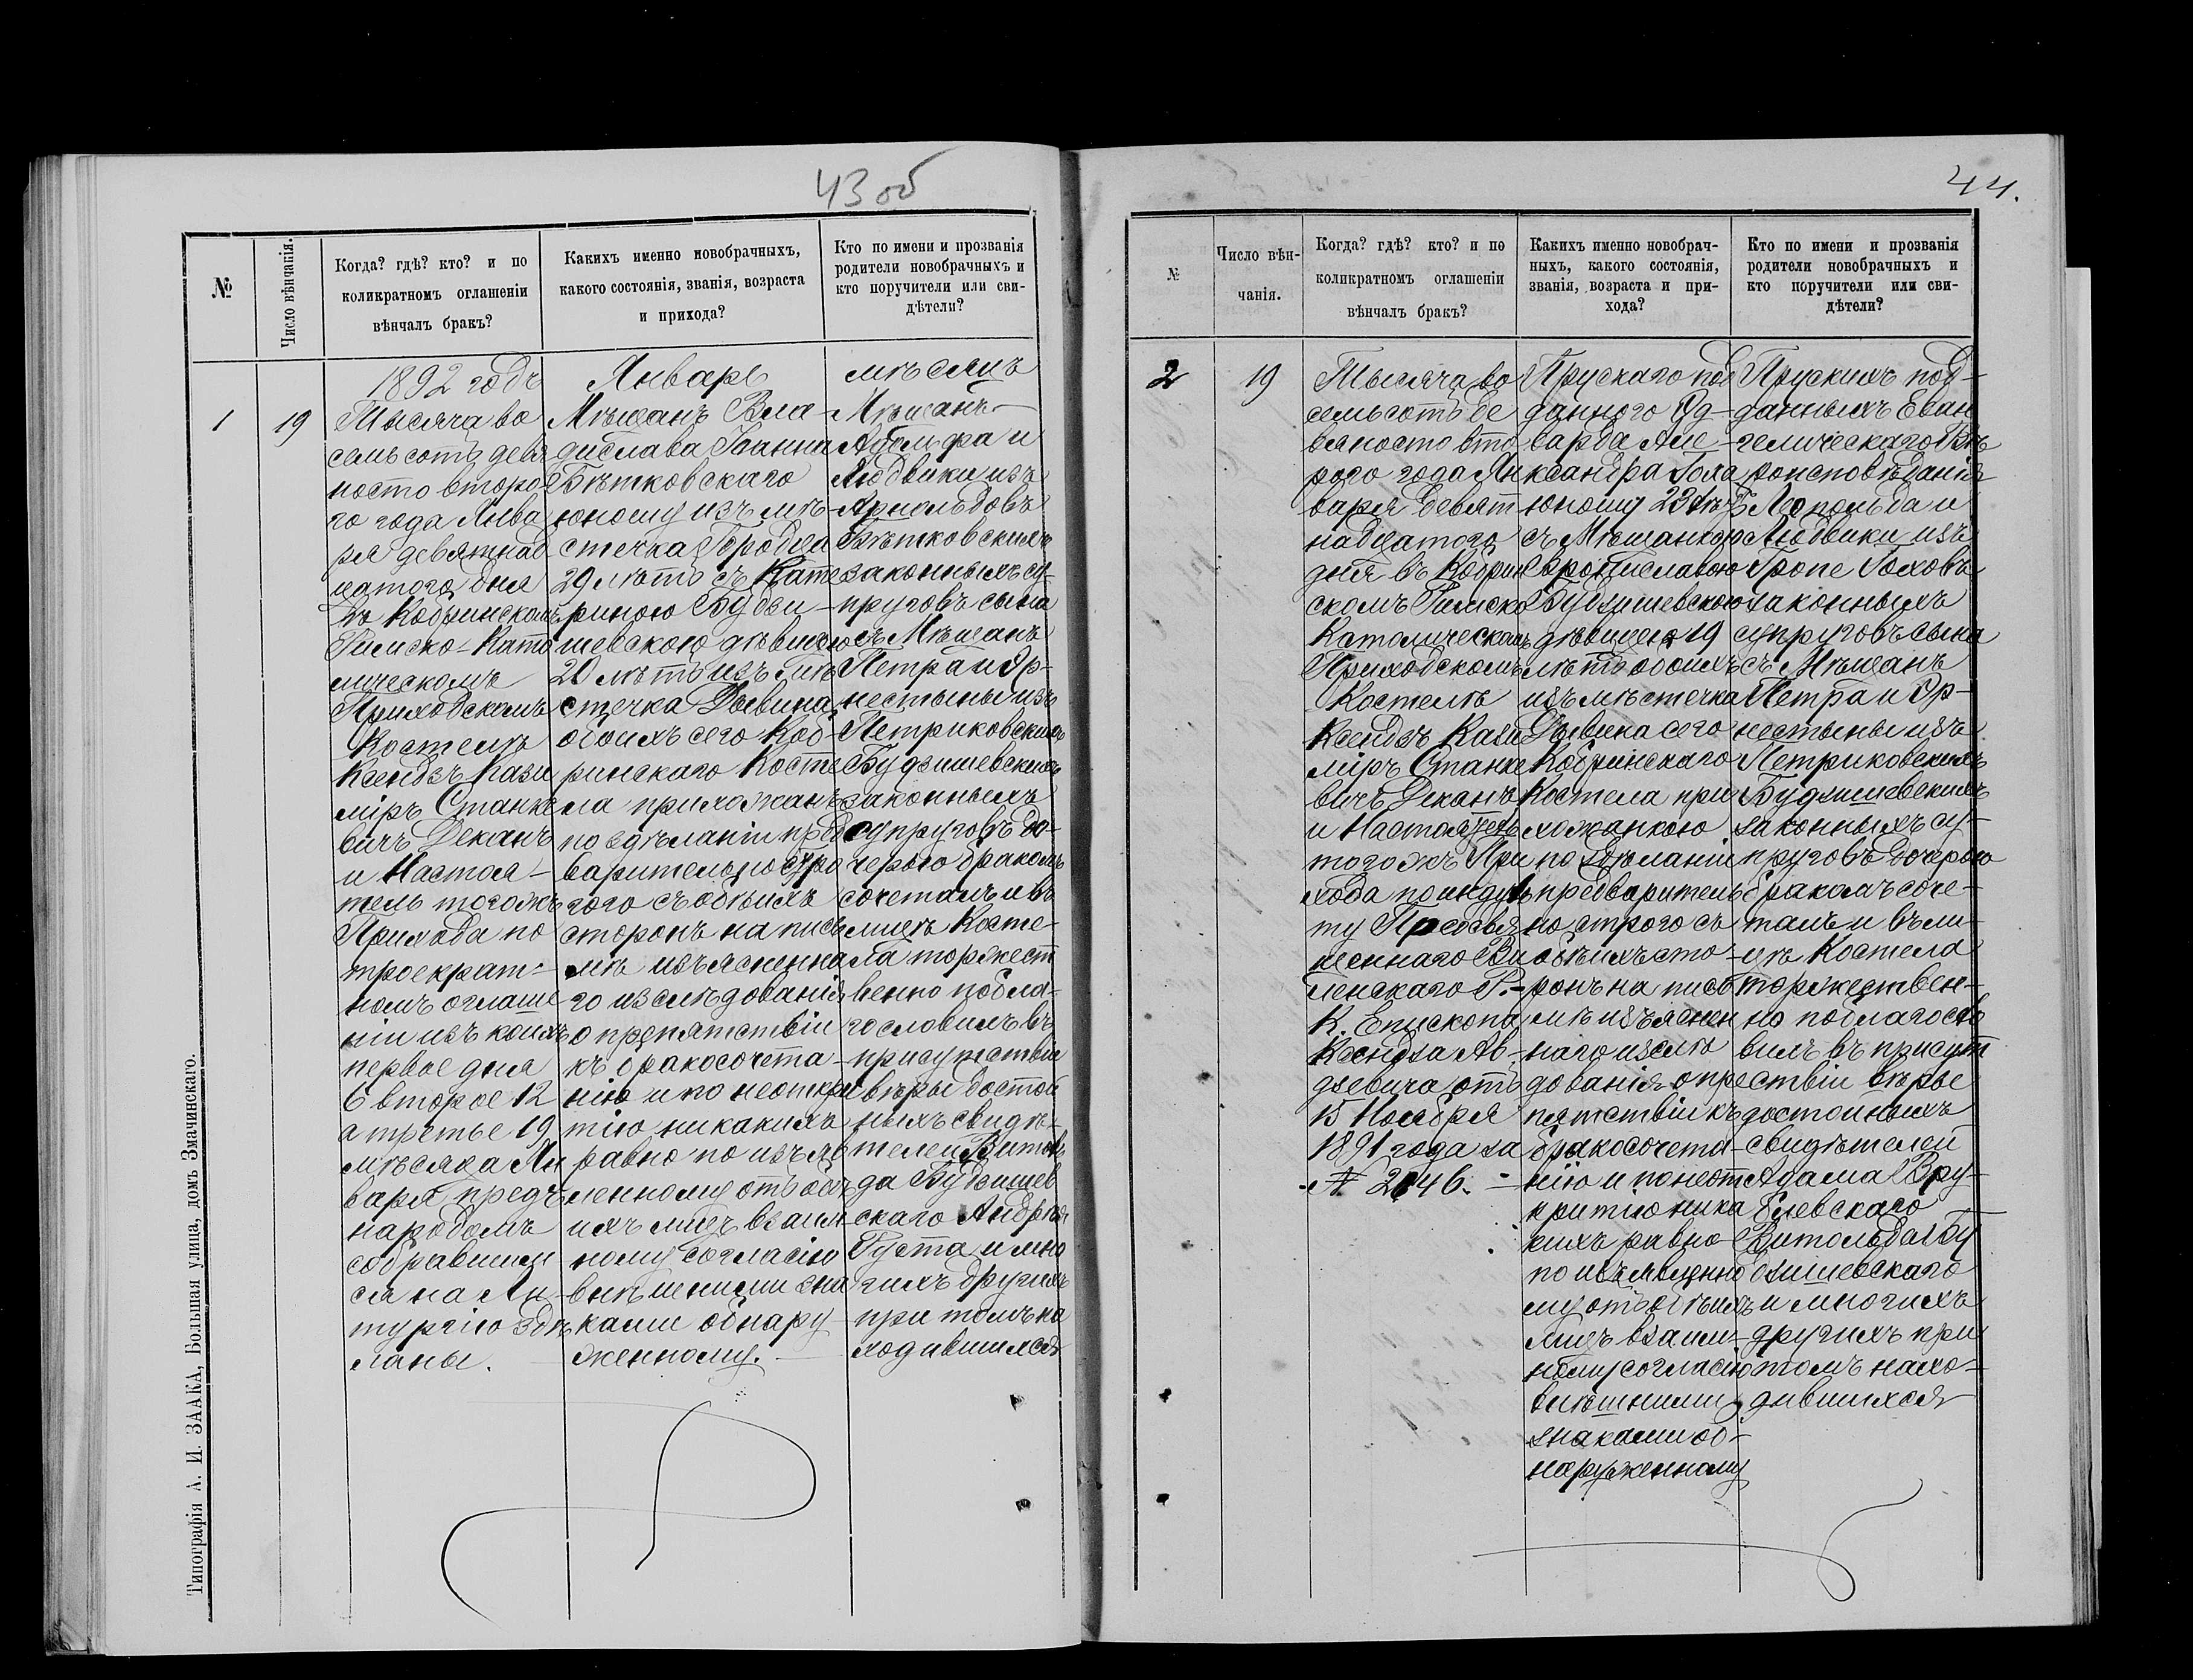 43 об
№
Число вѣнчанія.
Когда? гдѣ? кто? и по
коликратномъ оглашеніи
вѣнчалъ бракъ?
Какихъ именно новобрачныхъ,
какого состоянія, званія, возраста
и прихода?
Кто по имени и прозванія
родители новобрачныхъ и
кто поручители или сви-
дѣтели?
1892 годъ
Январь
мѣсяцъ
1
19
Тысяча во
семьсотъ девя
носто второ
го года Янва
ря девятнад
цатого дня
въ Кобринскомъ
Римско-Като
лическомъ
Приходскомъ
Костелѣ
Ксендзъ Кази
міръ Станке
вичъ Деканъ
и Настоя-
тель тогожъ
Прихода по
троекрат-
номъ оглаше
ніи изъ коихъ
первое дня
6 второе 12
а третье 19
мѣсяца Ян
варя предъ
народомъ
собравшим
ся на Ли-
тургію здѣ
ланы.
Мѣщанъ Вла-
дислава Іоанна
Бѣтковскаго
юношу изъ мѣ-
стечка Городца
29 лѣтъ съ Кате
риною Будзи-
шевскою дѣвицею
20 лѣтъ изъ мѣ
стечка Дывина
обоихъ сего Коб-
ринскаго Косте
ла прихожанъ
по здѣланіи пред
варительно стро
гого съ обѣихъ
сторонъ на пись
мѣ изъясненна
го изслѣдованія
о препятствіи
къ бракосочета-
нію и по неоткры
тію никакихъ
равно по изъяв
ленному отъ обѣ
ихъ лицъ взаим-
ному согласію
внѣшними зна
ками обнару-
женному.
Мѣщанъ
Адольфа и
Людвики изъ
Арнольдовъ
Бѣтковскихъ
законныхъ су-
пруговъ сына
съ Мѣщанъ
Петра и Эр-
нестыны изъ
Петриковскихъ
Будзишевскихъ
законныхъ
супруговъ до-
черью бракомъ
сочеталъ и въ
лицѣ Косте-
ла торжест
венно побла-
гословилъ въ
присутствіи
вѣры достой
ныхъ свидѣ-
телей Витоль
да Будзишев
скаго Андрея
Густа и мно
гихъ другихъ
при томъ на
ходившихся
Типографія А. И. ЗААКА, Большая улица, домъ Змачинскаго.
44.
№
Число вѣн-
чанія.
Когда? гдѣ? кто? и по
коликратномъ оглашеніи
вѣнчалъ бракъ?
Какихъ именно новобрач-
ныхъ, какого состоянія,
званія, возраста и при-
хода?
Кто по имени и прозванія
родители новобрачныхъ и
кто поручители или сви-
дѣтели?
2
19
Тысяча во
семьсотъ де
вяносто вто
рого года Ян
варя девят
надцатого
дня въ Кобрин
скомъ Римско
Католическомъ
Приходскомъ
Костелѣ
Ксендзъ Кази
міръ Станке
вичъ Деканъ
и Настоятель
тогожъ При
хода по индуль
ту Преосвя
щеннаго Ви
ленскаго Р.-
К. Епископа
Ксендза Ав-
дзевича отъ
15 Ноября
1891 года за
№ 2046.
Прускаго под
данного Эд-
варда Але-
ксандра Гоха
юношу 23 лѣтъ
съ Мѣщанкою
Брониславою
Будзишевскою
дѣвицею 19
лѣтъ обоихъ
изъ мѣстечка
Дывина сего
Кобринскаго
Костела при
хожанкою
по здѣланіи
предваритель
но строго съ
обѣихъ сто-
ронъ на пись
мѣ изъяснен
наго изслѣ
дованія о пре
пятствіи къ
бракосочета-
нію и по неот
крытію ника
кихъ равно
по изъявленно
му отъ обѣихъ
лицъ взаим-
ному согласію
внѣшними
знаками об-
наруженному
Прускихъ под-
данныхъ Еван
гелическаго Вѣ
роисповѣданія
Леопольда и
Людвики изъ
Гропе Гоховъ
законныхъ
супруговъ сына
съ Мѣщанъ
Петра и Эр-
нестыны изъ
Петриковскихъ
Будзишевскихъ
законныхъ су-
пруговъ дочерью
бракомъ соче-
талъ и въ ли-
цѣ Костела
торжествен-
но поблагосло
вилъ въ присут
ствіи вѣры
достойныхъ
свидѣтелей
Адама Вру-
блевскаго
Витольда Бу
дзишевскаго
и многихъ
другихъ при
томъ нахо-
дившихся